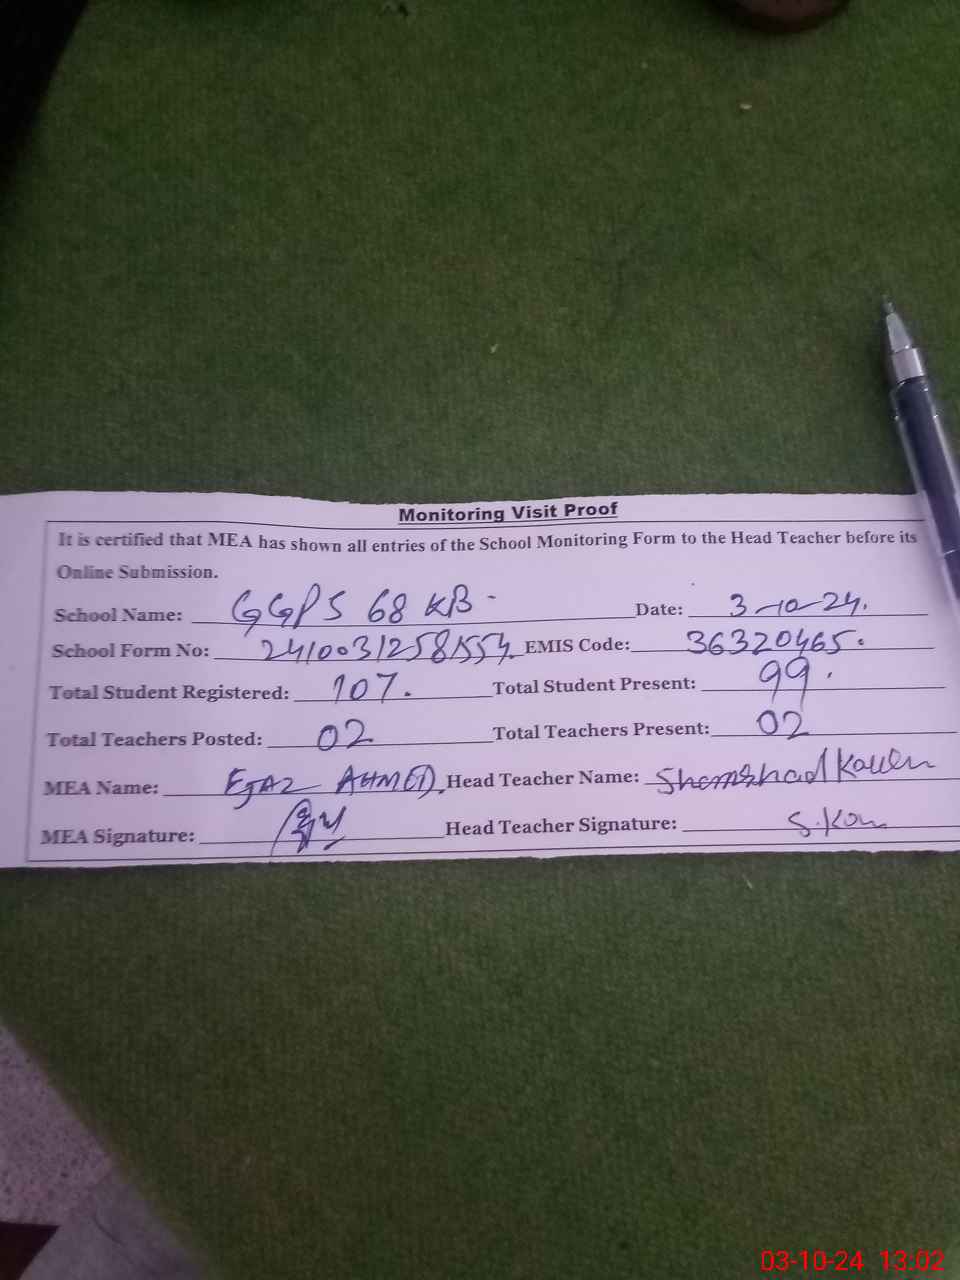 Monitoring Visit Proof
It is certified that MEA has shown all entries of the School Monitoring Form to the Head Teacher before its
Online Submission.
School Name: GGPS 68 KB - Date: 3-10-24.
School Form No: 24100312581554 EMIS Code: 36320465.
Total Student Registered: 107. Total Student Present: 99.
Total Teachers Posted: 02 Total Teachers Present: 02
MEA Name: EJAZ AHMED. Head Teacher Name: Shamshad
MEA Signature: Head Teacher Signature:
03-10-24 13:02